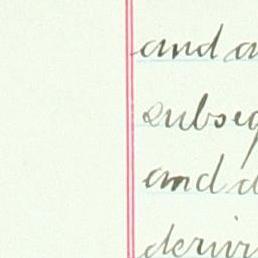 and a
subseq
and d
deriv